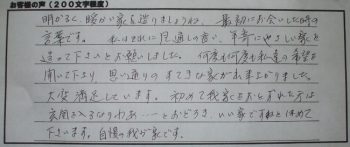 お客様の声（200文字程度）
明るく、暖かい家を造りましょうね、最初にお会いした時の
言葉です。私はそれに見通しの良い、平等にやさしい家を
造って下さいとお願いしました。何度も何度も私達の希望を
聞いて下さり、思い通りのすてきな家が出来上がりました。
大変満足しています。初めて我家をおとずれた方は
玄関を入るなりわあ…とおどろき、いい家ですねとほめて
下さいます。自慢の我が家です。